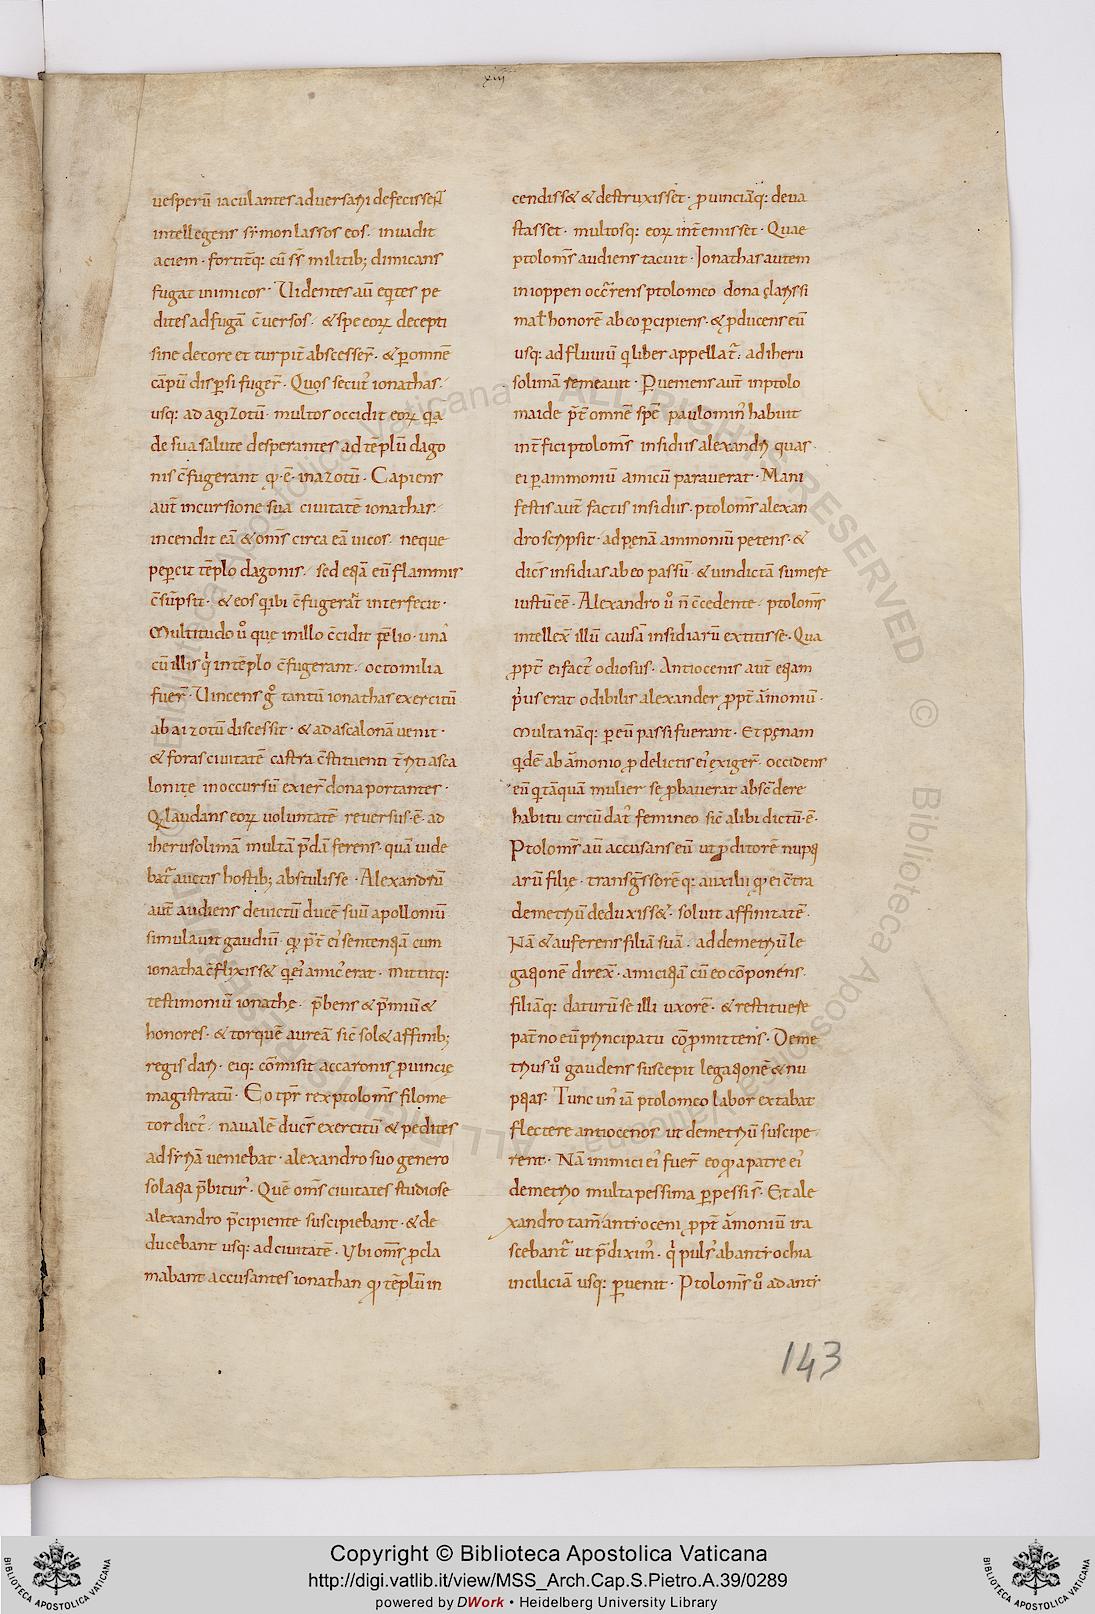 xiii
uesperu᷑ iaculantes aduersarii defecisse᷑t
intellegens symon lassos eos. inuadit
aciem. fortit᷑q: cu᷑ s᷑s militib; dimicans
fugat inimicos. Uidentes au᷑ eq᷑tes pe
dites ad fuga᷑ c᷑uersos. & spe eoꝝ decepti
sine decore et turpit᷑ abscesser᷑. & ꝑ omne᷑
ca᷑pu᷑ disꝑsi fuger᷑. Quos secut᷑ ionathas.
usq: ad agizotu᷑. multos occidit eoꝝ
de sua salute desperantes ad te᷑plu᷑ dago
nis c᷑fugerant qđ ÷ in azotu᷑. Capiens
aut᷑ incursione sua ciuitate᷑ ionathas.
incendit ea᷑ & om᷑s circa ea᷑ uicos. neque
peꝑcit te᷑plo dagonis. sed etia᷑ eu᷑ flammis
c᷑su᷑psit. & eos q᷑ ibi c᷑fugera᷑t interfecit.
Multitudo u᷑ quę in illo c᷑cidit p᷑lio. una᷑
cu᷑ illis q᷑ in te᷑plo c᷑fugerant. octo milia
fuer᷑. Uincens g᷑ tantu᷑ ionathas exercitu᷑
ab aizotu᷑ discessit. & ad ascalona᷑ uenit.
& foras ciuitate᷑ castra c᷑stituenti asca
lonitę in occursu᷑ exier᷑ dona portantes.
Q laudans eoꝝ uoluntate᷑ reuersus ÷ ad
iherusolima᷑ multa᷑ p᷑da᷑ ferens. qua᷑ uide
bat᷑ auctis hostib; abstulisse. Alexandru᷑
aut᷑ audiens deuictu᷑ duce᷑ suu᷑ apolloniu᷑
simulauit gaudiu᷑. qđ p᷑t᷑ ei᷑ sententia᷑ cum
ionatha c᷑flixiss& q᷑ ei᷑ amic᷑ erat. Mittitq:
testimoniu᷑ ionathę. p᷑bens & p᷑miu᷑ &
honores. & torque᷑ aurea᷑ sic᷑ sol& affinib;
regis dari. eiq: co᷑misit accaronis ꝓuincię
magistratu᷑. Eo tp᷑r rex ptolom᷑s filome
tor dict᷑. nauale᷑ duc᷑s exercitu᷑ & pedites
ad syria᷑ ueniebat. alexandro suo genero
solatia p᷑bitur᷑. Que᷑ om᷑s ciuitates studiose
alexandro p᷑cipiente suscipiebant. & de
ducebant usq: ad ciuitate᷑. Ubi om᷑s ꝓcla
mabant accusantes ionathan qđ te᷑plu᷑ in
cendiss& & destruxisset. ꝓuincia᷑q: deua
stasset. multosq: eoꝝ int᷑emisset. Quae
ptolom᷑s audiens tacuit. Ionathas autem
in ioppen occ᷑rens ptolomeo dona clarissi
ma t honore᷑ ab eo ꝑcipiens. & ꝓducens eu᷑
usq: ad fluuiu᷑ qui liber appellat᷑. ad iheru
solima᷑ remeauit. Perueniens aut᷑ in ptolo
maide p᷑t᷑ omne᷑ spe᷑ paulomin᷑ habuit
int᷑fici ptolom᷑s insidiis alexandri quas
ei ꝑ ammoniu᷑ amicu᷑ parauerat. Mani
festis aut᷑ factis insidiis. ptolom᷑s alexan
dro scripsit. ad pęna᷑ ammoniu᷑ petens. &
dic᷑s insidias ab eo passu᷑. & uindicta᷑ sumere
iustu᷑ e᷑e. Alexandro u᷑ n᷑ c᷑cedente. ptolom᷑s
intellex᷑ illu᷑ causa᷑ insidiaru᷑ extitisse. Qua
ꝓpt᷑ ei fact᷑ odiosus. Antiocenis aut᷑ etiam
p᷑us erat odibilis alexander ꝓpt᷑ a᷑moniu᷑.
Multa na᷑q: ꝑ eu᷑ passi fuerant. Et pęnam
q᷑de᷑ ab a᷑monio ꝓ delictis ei᷑ exiger᷑. occidens
eu᷑ q᷑ ta᷑qua᷑ mulier se ꝓbauerat absc᷑dere
habitu circu᷑dat᷑ femineo sic᷑ alibi dictu᷑ ÷
Ptolom᷑s au᷑ accusans eu᷑ ut ꝓditore᷑ nupti
aru᷑ filię. transg᷑ssore᷑q: auxilii qđ ei c᷑tra
demetriu᷑ deduxiss&. soluit affinitate᷑.
Na᷑ & auferens filia᷑ sua᷑. ad demetriu᷑ le
gatione᷑ direx᷑. amicitia᷑ cu᷑ eo co᷑ponens.
filia᷑q: daturu᷑ se illi uxore᷑. & restituere
pat᷑no eu᷑ principatu co᷑promittens. Deme
trius u᷑ gaudens suscepit legatione᷑ & nu
ptias. Tunc un᷑ ia᷑ ptolomeo labor extabat
flectere antiocenos ut demetriu᷑ suscipe
rent. Na᷑ inimici ei᷑ fuer᷑ eo qđ a patre ei᷑
demetrio multa pessima ꝑpessi s᷑. Et ale
xandro tam᷑ antioceni ꝓpt᷑ a᷑moniu᷑ ira
scebant᷑ ut p᷑dixim᷑. q᷑ puls᷑ ab antiochia
in cilicia᷑ usq: ꝑuenit. Ptolom᷑s u᷑ ad anti
143
Copyright © Biblioteca Apostolica Vaticana
http://digi.vatlib.it/view/MSS_Arch.Cap.S.Pietro.A.39/0289
powered by DWork • Heidelberg University Library